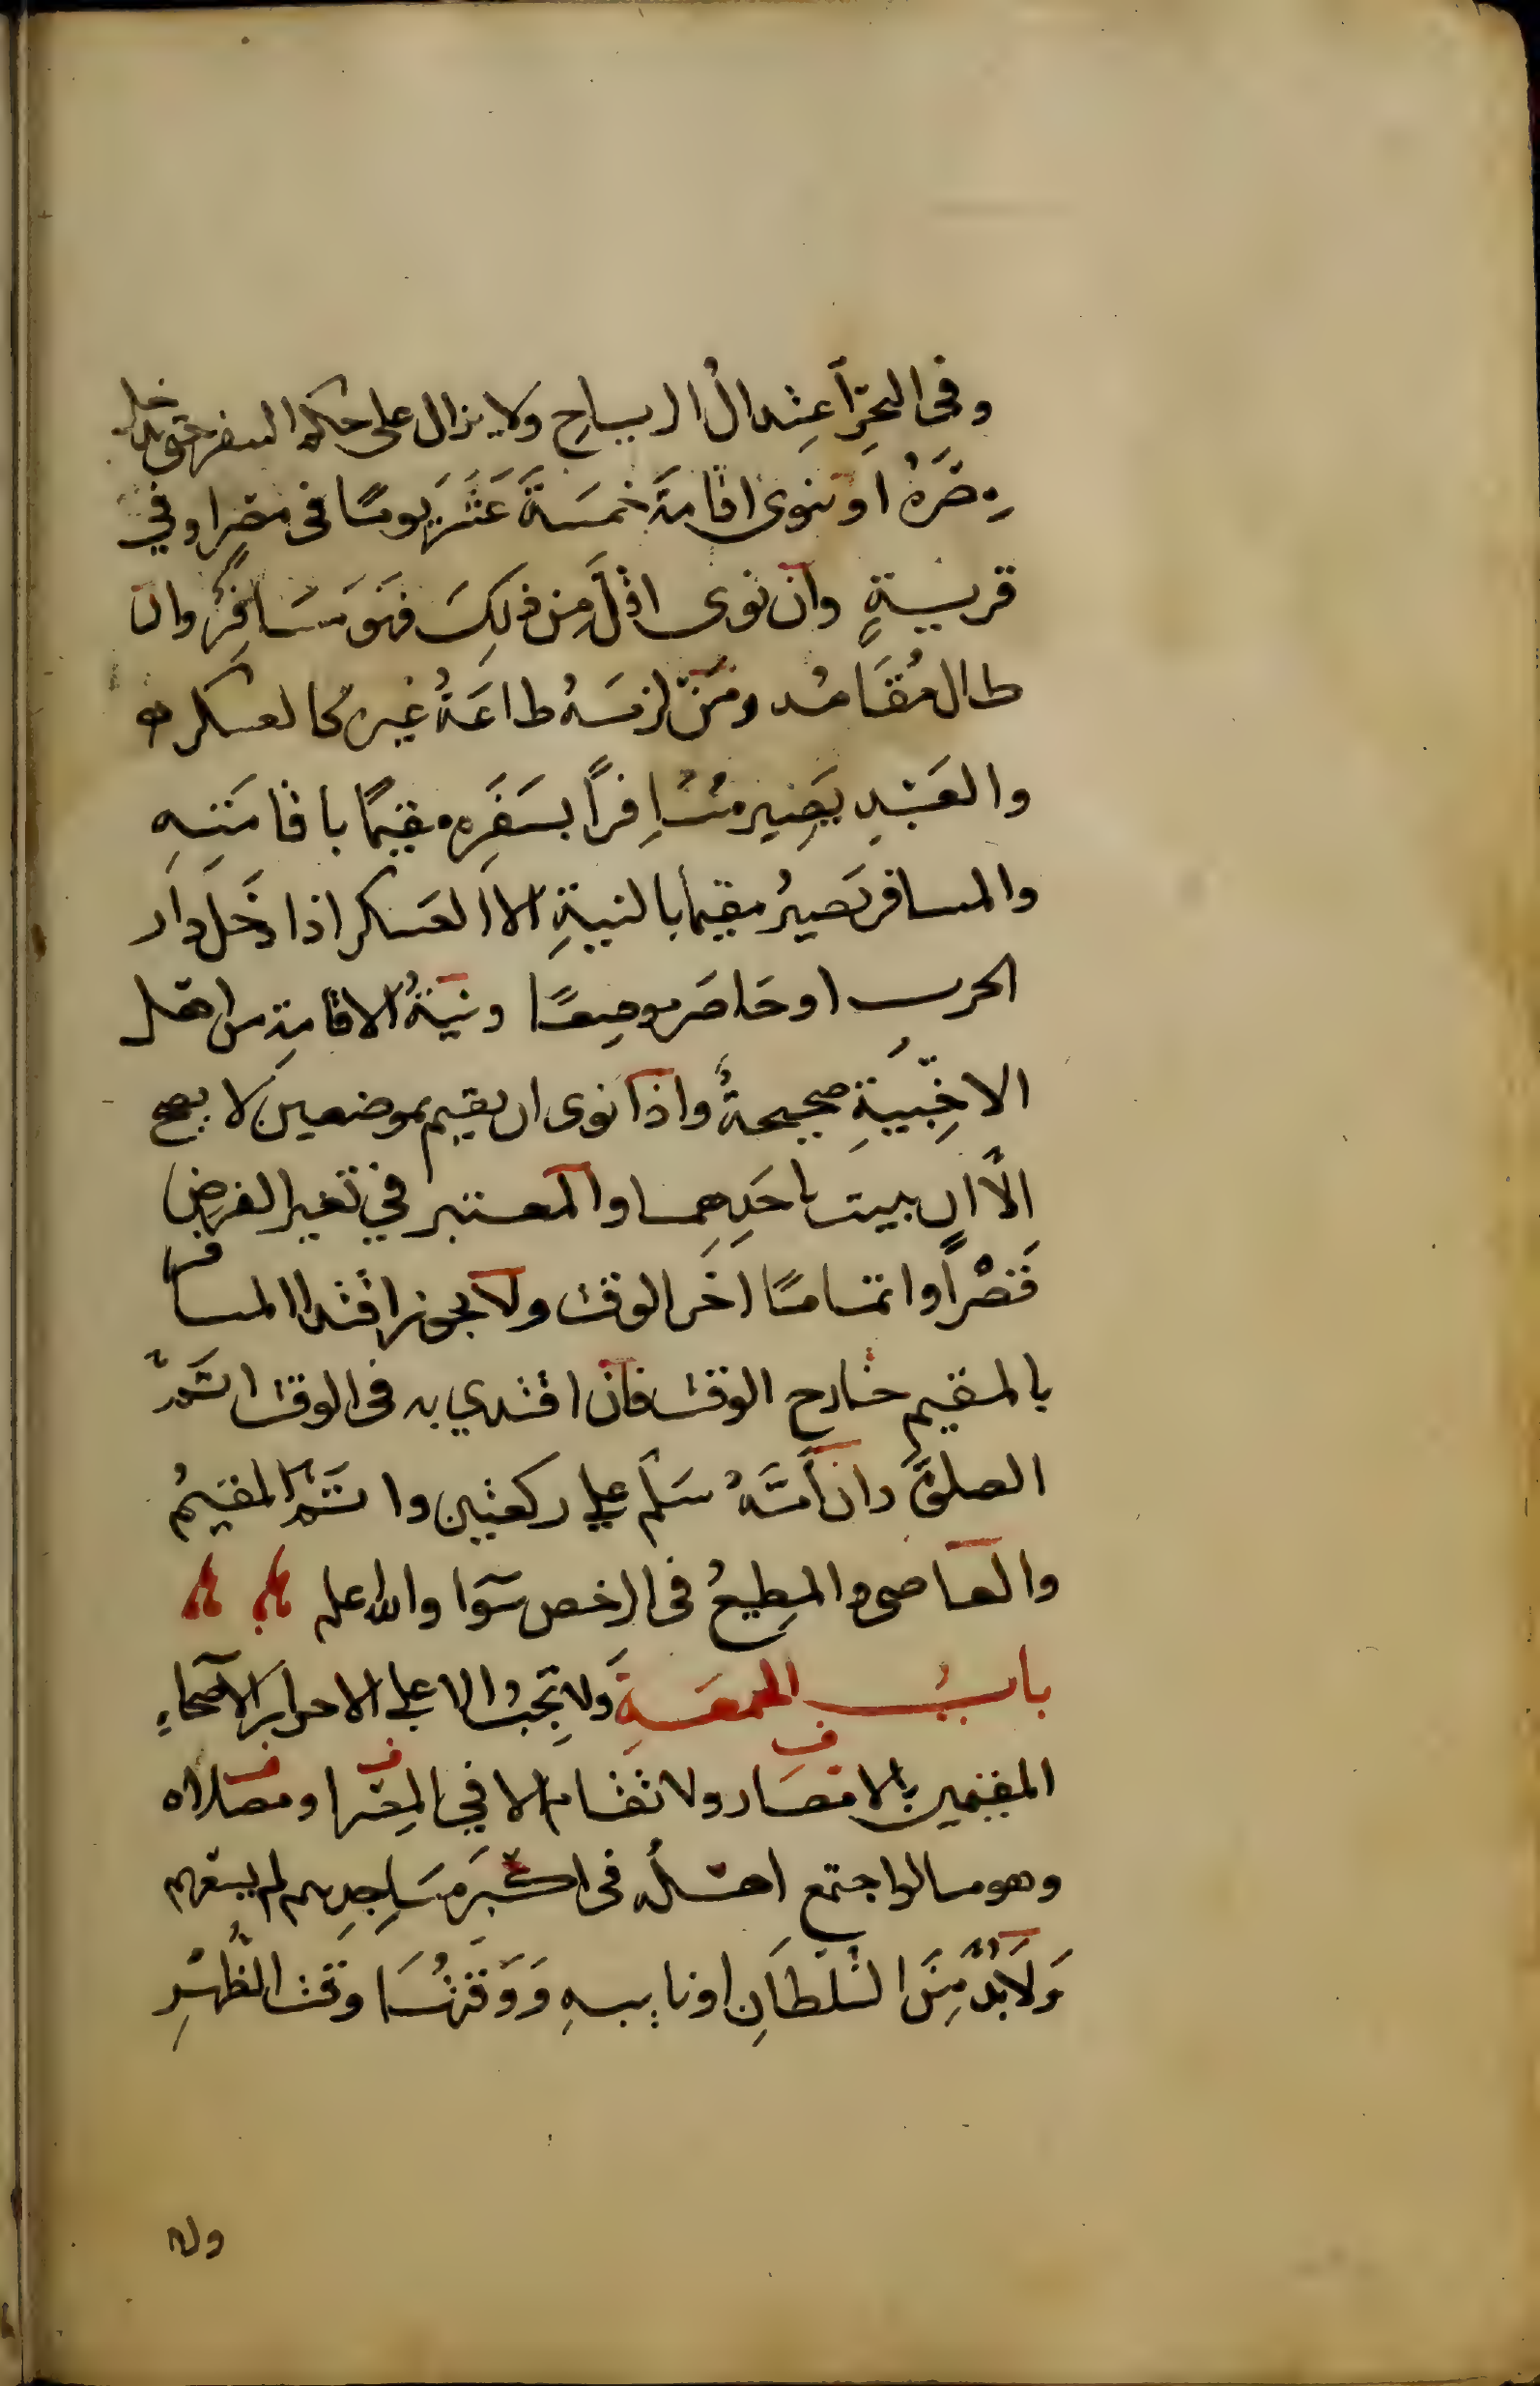 وفى البحرِ أعتِدالُ الرياحِ ولا يزال على حكم السفر حتى يدخل
مِصْرَهُ او ينوى اقامَةَ خمسَةَ عَشَرَ يومًا فى مصرٍ او في
قريةٍ وان نوى اقلَّ مِن ذلِكَ فهَوَ مسَافِرٌ وان
طال مُقَامُه ومَنْ لزمَهُ طاعَةُ غيرِه كالعسكر
والعَبْدِ يَصِير مُسَافِرًا بسَفَرِه مقيمًا باقامَتِهِ
والمسافر يَصيرُ مقيما بالنيةِ الا العَسكر اذا دخَلَ دار
الحرب او حَاصَر موضِعًا ونيَّةُ الاقامةِ من اهل
الاخبِّيَةِ صحيحةٌ واذا نوى ان يقيم بموضعين لا يصح
الّا ان يبيت باحَدِهِما والمعتبر في تغير الفرضِ
قَصْرًا واتمامًا اخَر الوقت ولا يجوز اقتدا المسافر
بالمقيم خارج الوقت فان اقتدي به فى الوقت اتَمَّ
الصلوةَ وان اَمَّهُ سَلَّم علي ركعتين واتَمَّ المقيمُ
والعاصى والمطِيعُ فى الرخص سَوا والله اعلم
بابُ الجمعَةِ وَلا تَجِبُ الا علي الاحرارِ الاَصحاءِ
المقيمين بالامصَار ولا تقام الا في المِصْر او مصلاه
وهو ما لو اجتمع اهلُه فى اكبَرِ مسَاجِدِهم لم يسعهم
وَلَا بُدَّ مِنَ السُلطَانِ او نايبهِ وَوَقتُهَا وقت الظُهْرِ
ولا